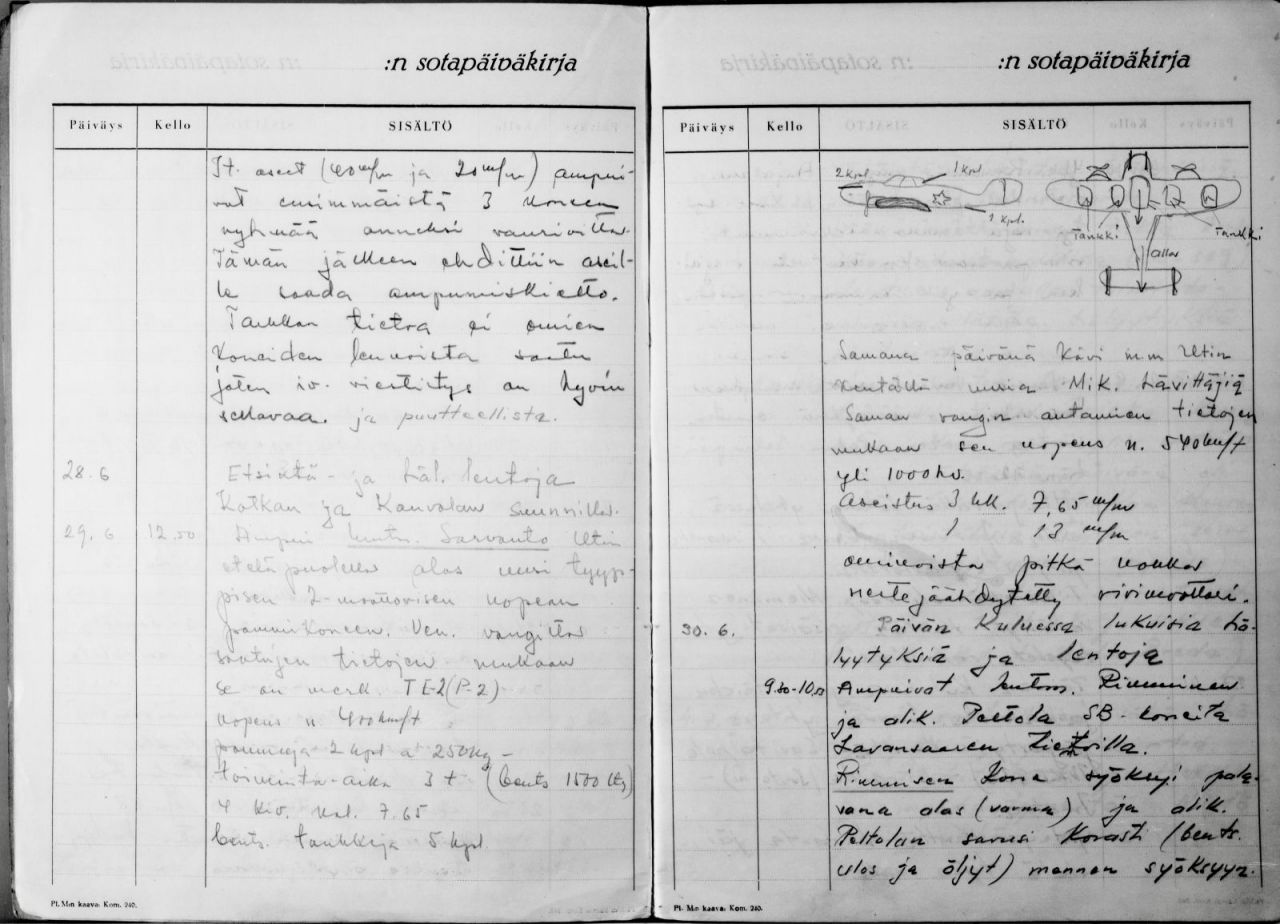 :n sotapäiväkirja
Päiväys Kello SISÄLTÖ
It. aseet (40 m/m ja 20 m/m) ampui-
vat ensimmäistä 3 koneen
ryhmää onneksi vaurioitta
Tämän jälkeen ehdittiin aseil-
le saada ampumiskielto.
Tarkkaa tietoa ei omien
koneiden lennoista saatu
joten iv. viestitys on hyvin
sekavaa ja puutteellista.
28.6 Etsintä- ja häl. lentoja
Kotkan ja Kouvolan suunnilla.
29.6 12.50 Ampui luutn. Sarvanto Utin
eteläpuolella alas uusi tyyp-
pisen 2-moottorisen nopean
pommikoneen. Ven. vangilta
saatujen tietojen mukaan
se on merk. TE-2 (P-2)
nopeus n. 400 km/t
pommeja 2 kpl a 250 kg -
toiminta-aika 3 t (bents 1500 ltr)
4 kiv. kal. 7.65
bents. tankkeja 5 kpl
Pt. M:n kaava: Kom. 240.
:n sotapäiväkirja
Päiväys Kello SISÄLTÖ
2 kpl. 1 kpl
1 kpl.
Tankki Tankki
alla
Samana päivänä kävi m.m Utin
kentällä uusia M.i.K. hävittäjiä
Saman vangin antamien tietojen
mukaan sen nopeus n. 540 km/t
yli 1000 hv.
Aseistus 3 kk. 7,65 m/m
1 13 m/m
ominaista pitkä nokka
nestejäähdytetty rivimoottori.
30.6. Päivän kuluessa lukuisia hä-
lyytyksiä ja lentoja
9.30-10.50 Ampuivat luutn. Riimminen
ja alik. Peltola SB-koneita
Lavansaaren tietoilla.
Rimmisen kone syöksyi pala-
vana alas (varma) ja alik.
Peltolan sauusi kovasti (bents.
ulos ja öljyt) mennen syöksyyn.
Pt. M:n kaava: Kom. 240.